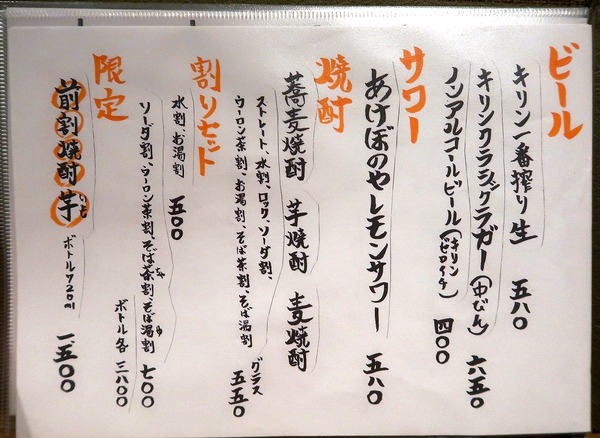 ビール
キリン一番搾り生 五八〇
キリンクラシックラガー(中びん) 六五〇
ノンアルコールビール(キリンゼロイチ) 四〇〇
サワー
あけぼのやレモンサワー 五八〇
焼酎
蕎麦焼酎 芋焼酎 麦焼酎
ストレート、水割、ロック、ソーダ割、
ウーロン茶割、お湯割、そば茶割、そば湯割 グラス 五五〇
ボトル各 三八〇〇
割りセット
水割、お湯割 五〇〇
ソーダ割、ウーロン茶割、そば茶割、そば湯割 七〇〇
限定
前割焼酎芋 ボトル720ml 一、五〇〇